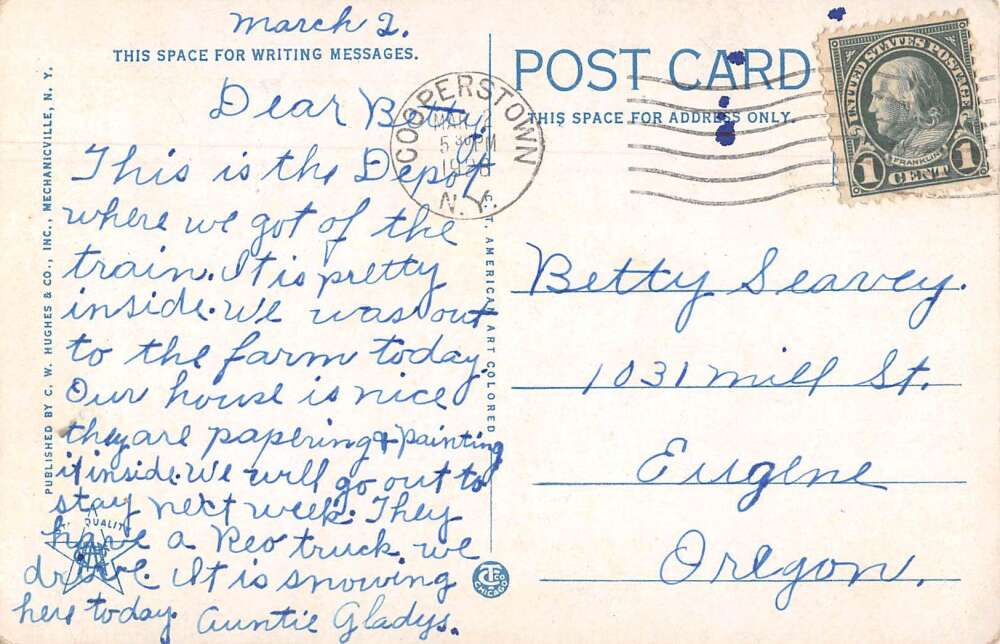 March 2.
THIS SPACE FOR WRITING MESSAGES.
Dear Betty,
This is the Depot
where we got of the
train. It is pretty
inside. We was out
to the farm today.
Our house is nice
they are papering & painting
it inside. We will go out to
stay next week. They
have a Reo truck we
drive. It is snowing
here today. Auntie Gladys.
PUBLISHED BY C. W. HUGHES & CO., INC., MECHANICVILLE, N. Y.
QUALITY
C. T. AMERICAN ART COLORED
CHICAGO
COOPERSTOWN
MAR
5 PM
N. Y.
POST CARD
THIS SPACE FOR ADDRESS ONLY.
UNITED STATES POSTAGE
FRANKLIN
1 CENT 1
Betty Seavey.
1031 Mill St.
Eugene
Oregon.